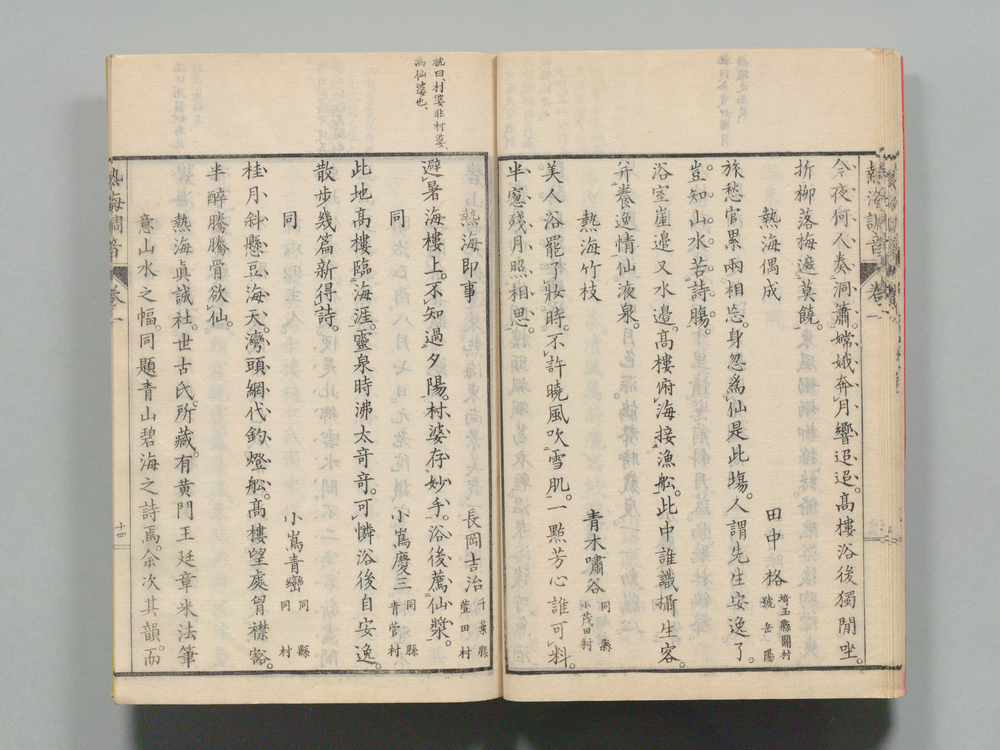 熱海調音 卷一
今夜何人奏洞簫。嫦娥奔月響迢迢。高樓浴後獨閒坐。
折柳落梅遮莫饒。
熱海偶成 田中 格 埼玉縣關村 號岳陽
旅愁官累兩相忘。身忽爲仙是此塲。人謂先生安逸了。
豈知山水苦詩膓。
浴室崖邉又水邉。高樓俯海接漁船。此中誰識攝生客。
并養逸情仙液泉。
熱海竹枝 青木嘯谷 同縣 小茂田村
美人浴罷了妝時。不許曉風吹雪肌。一點芳心誰可料。
半窓殘月照相思。
熱海即事 長岡吉治 千葉縣 萱田村
杭曰、村婆非村婆、
爲仙婆也、
避暑海樓上。不知過夕陽。村婆存妙手。浴後薦仙漿。
同 小嶌慶三 同縣 青菅村
此地高樓臨海涯。靈泉時沸太奇奇。可憐浴後自安逸。
散步幾篇新得詩。
同 小嶌青巒 同縣 同村
桂月斜懸豆海天。灣頭網代釣燈船。高樓望處胷襟豁。
半醉騰騰骨欲仙。
熱海眞誠社。世古氏所藏。有黄門王廷章米法筆
意山水之幅。同題青山碧海之詩焉。余次其韻。而
熱海調音 卷一 十四